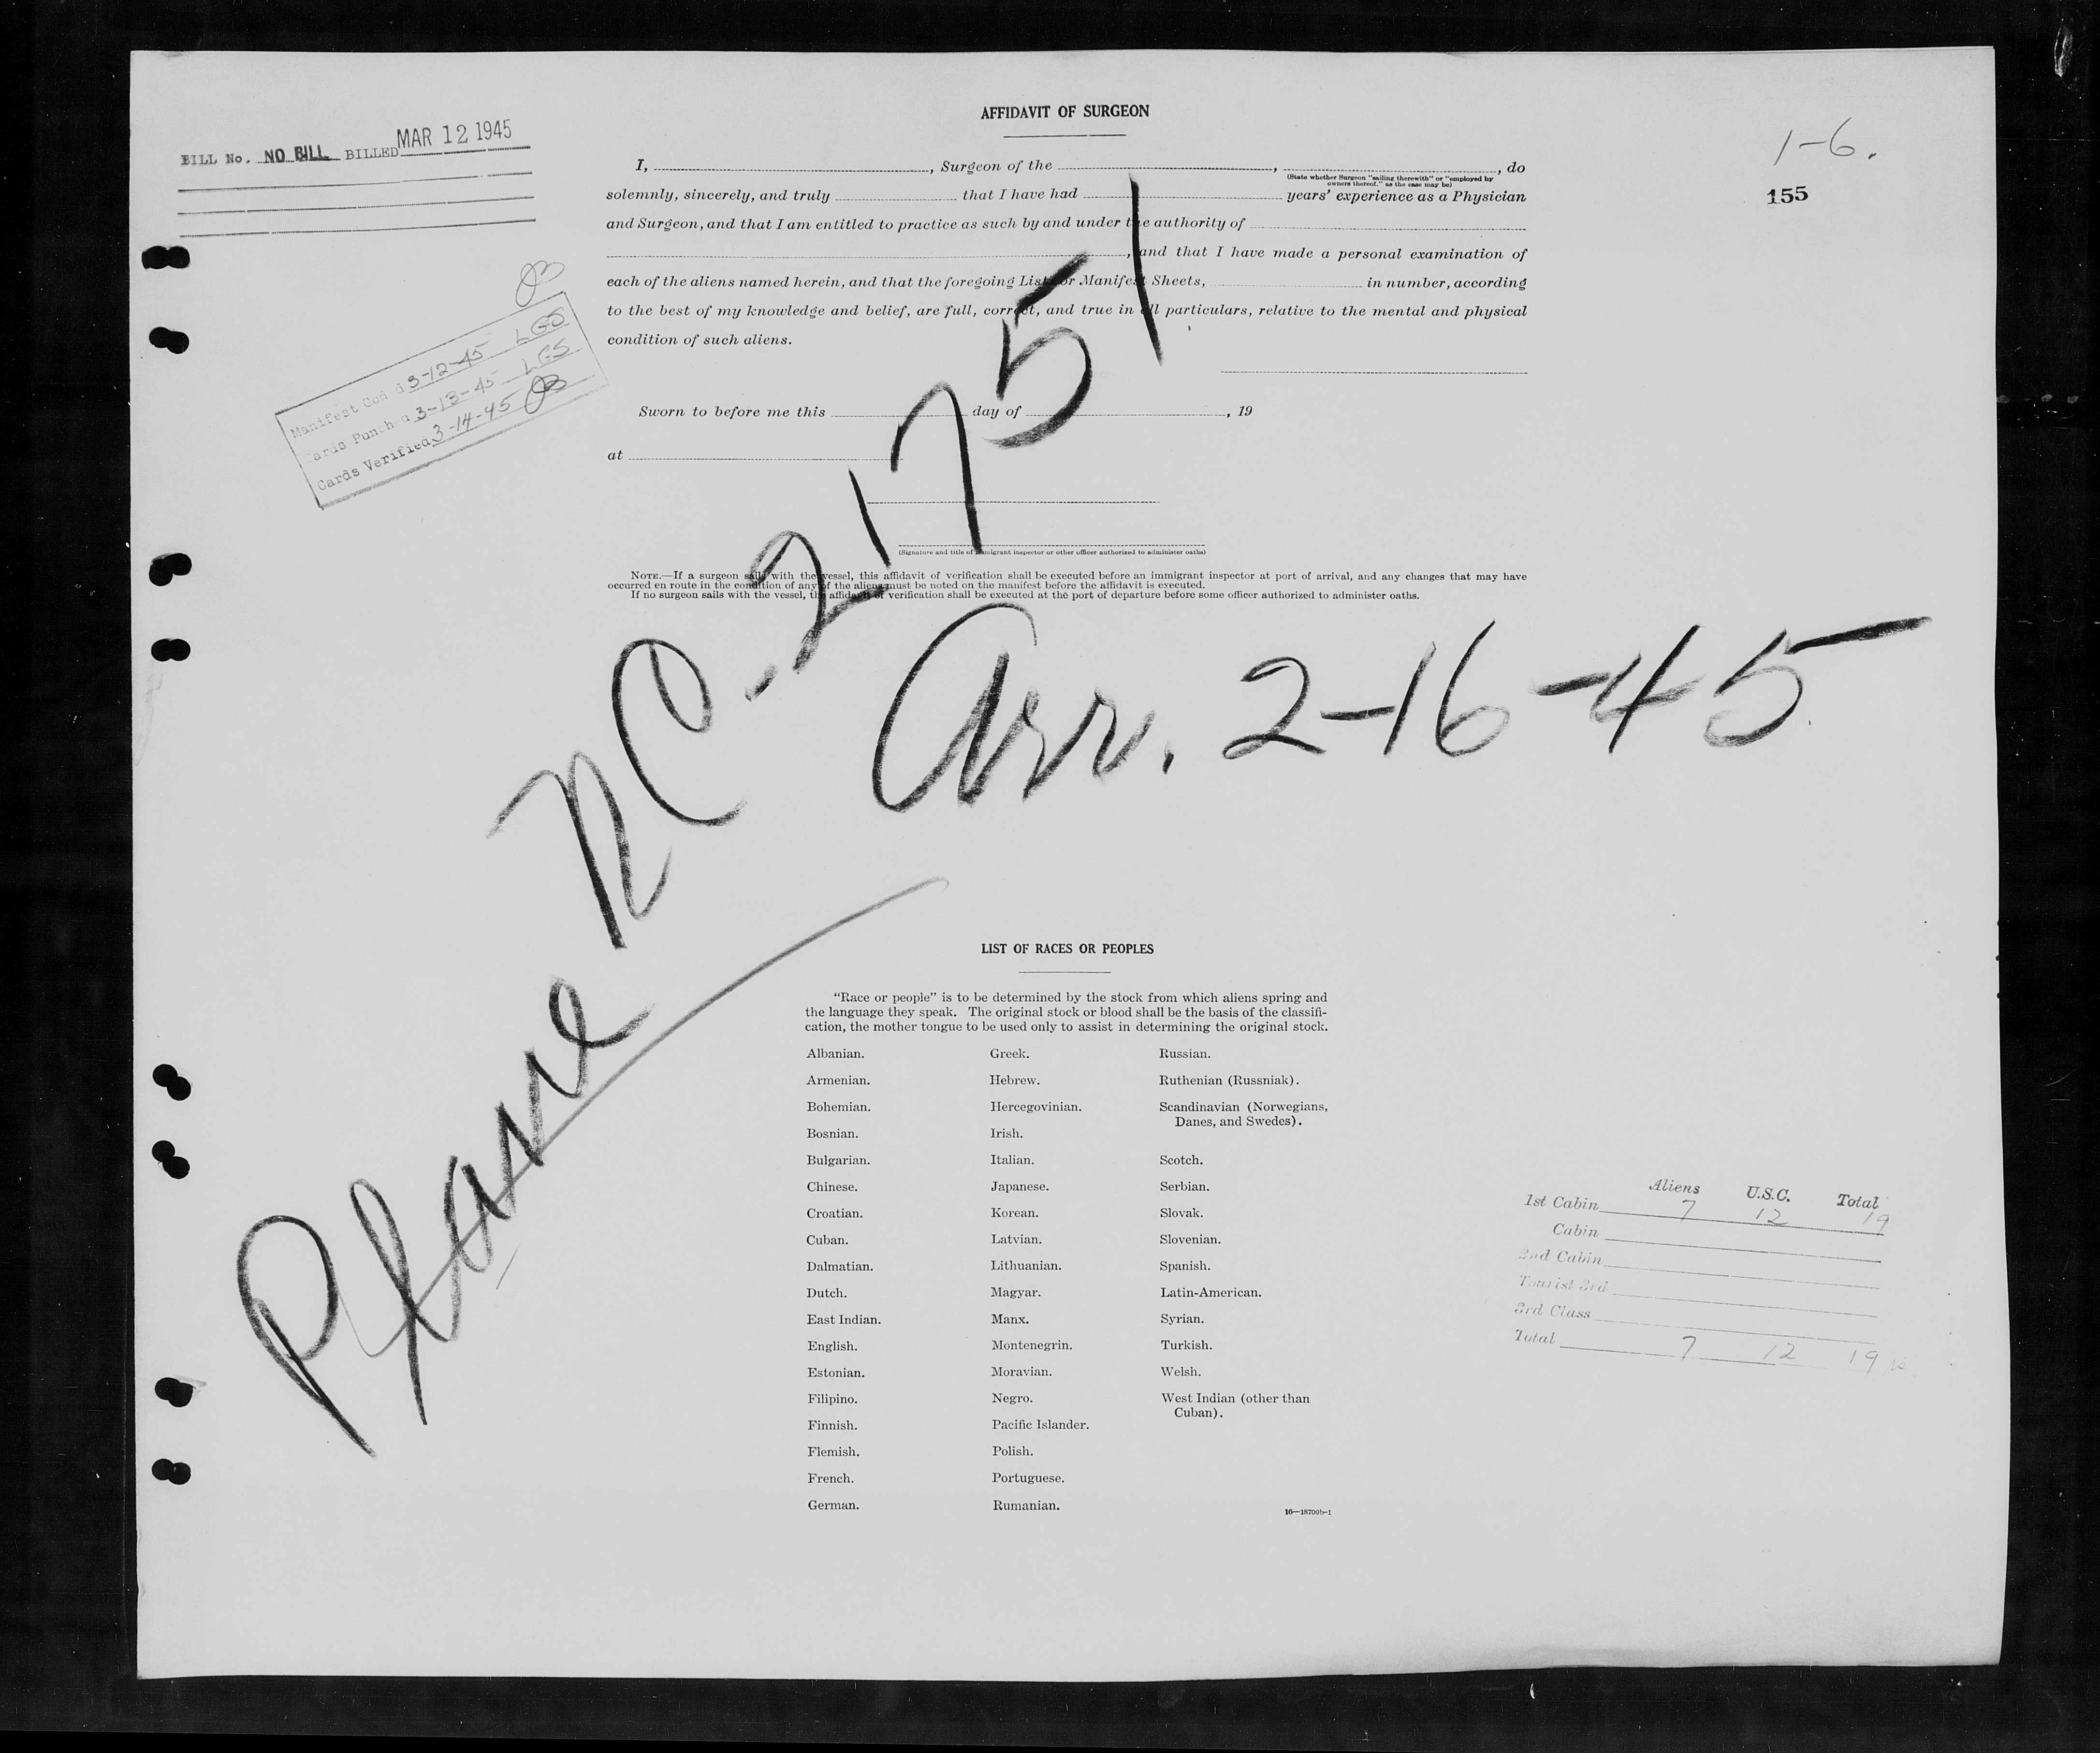 AFFIDAVIT OF SURGEON
BILL No. NO BILL BILLED MAR 12 1945
1-6.
155
I, , Surgeon of the , , do
(State whether Surgeon "sailing therewith" or "employed by
owners thereof," as the case may be)
solemnly, sincerely, and truly that I have had years' experience as a Physician
and Surgeon, and that I am entitled to practice as such by and under the authority of
, and that I have made a personal examination of
each of the aliens named herein, and that the foregoing Lists or Manifest Sheets, in number, according
to the best of my knowledge and belief, are full, correct, and true in all particulars, relative to the mental and physical
condition of such aliens.
Manifest Cod d 3-12-45 LGS
ards Punch d 3-13-45 LGS
Cards Verified 3-14-45
Sworn to before me this day of , 19
at
(Signature and title of immigrant inspector or other officer authorized to administer oaths)
NOTE.—If a surgeon sails with the vessel, this affidavit of verification shall be executed before an immigrant inspector at port of arrival, and any changes that may have
occurred en route in the condition of any of the aliens must be noted on the manifest before the affidavit is executed.
If no surgeon sails with the vessel, the affidavit of verification shall be executed at the port of departure before some officer authorized to administer oaths.
Plane NC-21751
Arr. 2-16-45
LIST OF RACES OR PEOPLES
"Race or people" is to be determined by the stock from which aliens spring and
the language they speak. The original stock or blood shall be the basis of the classifi-
cation, the mother tongue to be used only to assist in determining the original stock.
Albanian.
Armenian.
Bohemian.
Bosnian.
Bulgarian.
Chinese.
Croatian.
Cuban.
Dalmatian.
Dutch.
East Indian.
English.
Estonian.
Filipino.
Finnish.
Flemish.
French.
German.
Greek.
Hebrew.
Hercegovinian.
Irish.
Italian.
Japanese.
Korean.
Latvian.
Lithuanian.
Magyar.
Manx.
Montenegrin.
Moravian.
Negro.
Pacific Islander.
Polish.
Portuguese.
Rumanian.
Russian.
Ruthenian (Russniak).
Scandinavian (Norwegians,
Danes, and Swedes).
Scotch.
Serbian.
Slovak.
Slovenian.
Spanish.
Latin-American.
Syrian.
Turkish.
Welsh.
West Indian (other than
Cuban).
16—18700b-1
Aliens U.S.C. Total
1st Cabin 7 12 19
Cabin
2nd Cabin
Tourist 3rd
3rd Class
Total 7 12 19